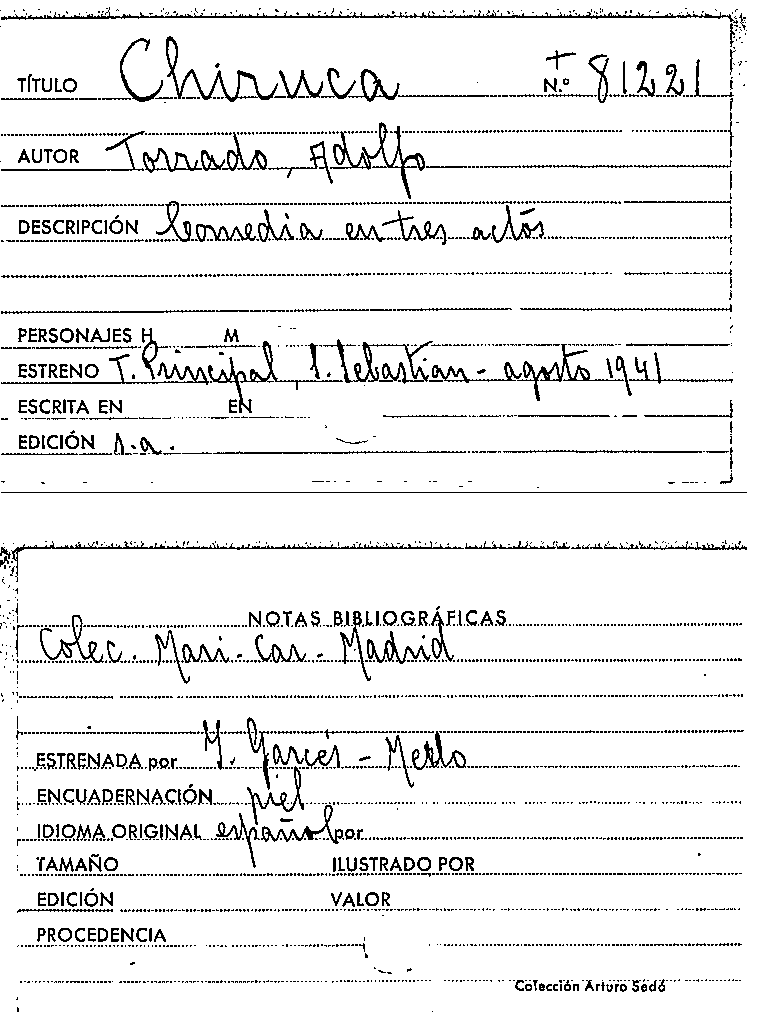 TÍTULO Chiruca N.º 81221
AUTOR Torrado, Adolfo
DESCRIPCIÓN Comedia en tres actos
PERSONAJES H M
ESTRENO T. Principal, S. Sebastian - agosto 1941
ESCRITA EN EN
EDICIÓN s.a.
NOTAS BIBLIOGRÁFICAS
Colec. Mari-Car - Madrid
ESTRENADA por M. Garcés - Merlo
ENCUADERNACIÓN piel
IDIOMA ORIGINAL español por
TAMAÑO ILUSTRADO POR
EDICIÓN VALOR
PROCEDENCIA
Colección Arturo Sedó